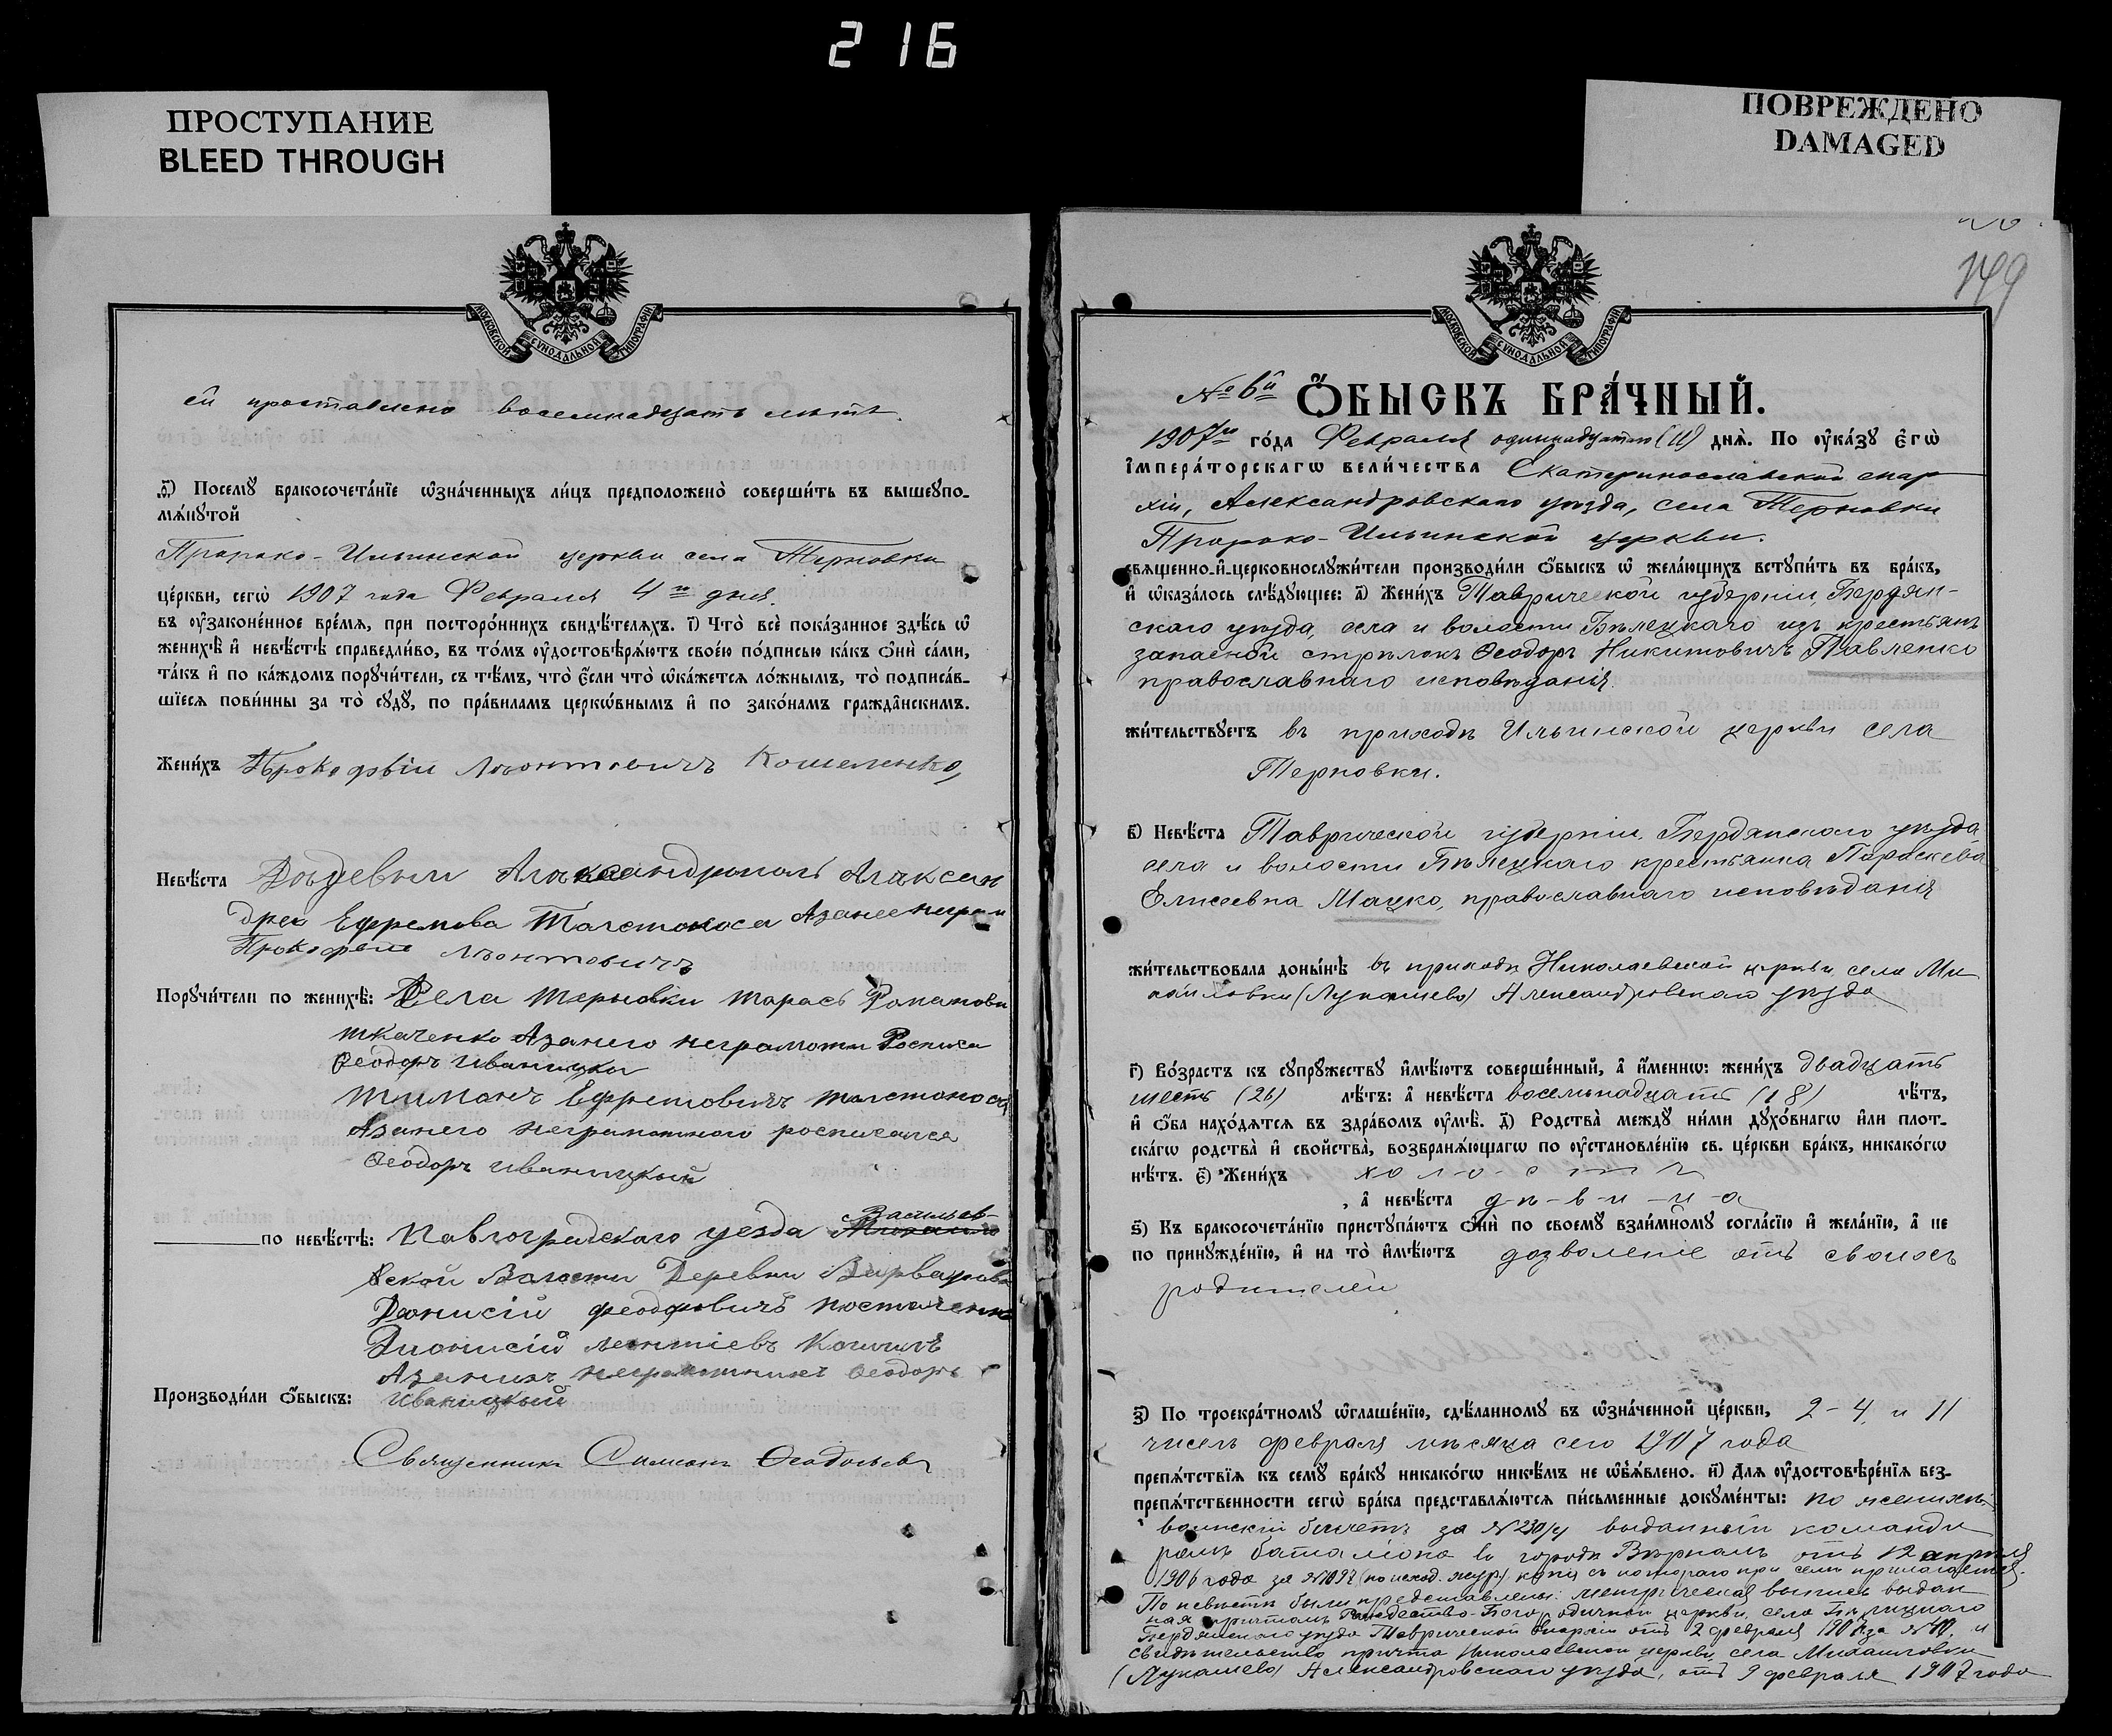 216
ПРОСТУПАНИЕ
BLEED THROUGH
ПОВРЕЖДЕНО
DAMAGED
МОСКОВСКОЙ СѴНОДАЛЬНОЙ ТИПОГРАФІИ
ей проставлено восемнадцать лѣтъ.
ѳ) Посемꙋ бракосочета́нїе ѡ҆зна́ченныхъ ли́цъ предположено̀ соверши́ть въ вышеꙋпо-
мѧ́нꙋтой
Пророко-Ильинской церкви села Терновки
це́ркви, сегѡ̀ 1907 года Февраля 4го дня.
въ ᲂу҆зако́ненное вре́мѧ, при посторо́ннихъ свидѣ́телѧхъ. і) Что̀ всѐ пока́занное здѣ́сь ѡ҆
женихѣ̀ и҆ невѣ́стѣ справедли́во, въ то́мъ ᲂу҆достовѣрѧ́ютъ свое́ю по́дписью ка́къ ѻ҆нѝ са́ми,
та́къ и҆ по ка́ждомъ порꙋчи́тели, съ тѣ́мъ, что̀ є҆́сли что̀ ѡ҆ка́жетсѧ ло́жнымъ, то̀ подписа́в-
шїесѧ пови́нны за то̀ сꙋдꙋ̀, по пра́виламъ церкѡ́внымъ и҆ по зако́намъ гражда̑нскимъ.
Жени́хъ Прокофѣй Лѣонтовичъ Кошеленко,
Невѣ́ста Александра
дра Ефремова Толстонося Азанее неграм
Прокофей Лѣонтовичъ
Порꙋчи́тели по женихѣ̀: Села Терновки Тарасъ
Ткаченко Азанего неграмотн Росписа
Ѳеодоръ Иваницки
Ефремовичъ Толстонося
Азанего неграмотного росписался
Ѳеодоръ Иваницкый
по невѣ́стѣ: Павлоградскаго уезда Васильев-
ской Волости Деревни Варваровк
Дионисій Феодоровичъ
Дионисій Леонтіевъ
Азаних неграмотних Ѳеодоръ
Производи́ли ѻ҆́быскъ: Иваницкый
Священникъ Симеонъ
149
№ 6й ѺБЫСКЪ БРА́ЧНЫЙ.
1907го го́да Февраля одиннадцатаго (11) днѧ̀. По ᲂу҆ка́зꙋ є҆гѡ̀
і҆мпера́торскагѡ вели́чества Екатеринославской епар
хіи, Александровскаго уѣзда, села Терновки
Пророко-Ильинской церкви.
свѧщенно-и҆-церковнослꙋжи́тели производи́ли ѻ҆́быскъ ѡ҆ жела́ющихъ встꙋпи́ть въ бра́къ,
и҆ ѡ҆каза́лось слѣ́дꙋющее: а҃) Жени́хъ Таврической губерніи, Бердян-
скаго уѣзда, села и волости Бѣлецкаго изъ крестьянъ
запасной стрѣлокъ Ѳеодоръ Никитовичъ Павленко
православнаго исповѣданія.
жи́тельствꙋетъ въ приходѣ Ильинской церкви села
Терновки.
в҃) Невѣ́ста Таврической губерніи, Бердянскаго уѣзда
села и волости Бѣлецкаго крестьянка Параскева
Елисеевна Мацко, православнаго исповѣданія
жи́тельствовала доны́нѣ въ приходѣ Николаевской церкви, села Ми
хайловки (Лукашево) Александровскаго уѣзда
г҃) Во́зрастъ къ сꙋпрꙋ́жествꙋ и҆мѣ́ютъ соверше́нный, а҆ и҆́меннѡ: жени́хъ двадцать
шесть (26) лѣ́тъ: а҆ невѣ́ста восемьнадцать (18) лѣ́тъ,
и҆ ѻ҆́ба нахо́дѧтсѧ въ здра́вомъ ᲂу҆мѣ̀. д҃) Родства̀ междꙋ ни́ми дꙋхо́внагѡ и҆лѝ плот-
ска́гѡ родства̀ и҆ свойства̀, возбранѧ́ющагѡ по ᲂу҆становле́нїю св. це́ркви бра́къ, никако́гѡ
нѣ́тъ. є҃) Жени́хъ холостъ
, а҆ невѣ́ста д-ѣ-в-и-ц-а
ѕ҃) Къ бракосочета́нїю пристꙋпа́ютъ ѻ҆нѝ по своемꙋ̀ взаи́мномꙋ согла́сїю и҆ жела́нїю, а҆ не
по принꙋжде́нїю, и҆ на то̀ и҆мѣ́ютъ дозволеніе отъ своихъ
родителей
з҃) По троекра́тномꙋ ѡ҆глаше́нїю, сдѣ́ланномꙋ въ ѡ҆зна́ченной це́ркви, 2-4, и 11
чиселъ февраля мѣсяца сего 1907 года
препѧ́тствїѧ къ семꙋ̀ бра́кꙋ никако́гѡ никѣ́мъ не ѡ҆б̾ѧ́влено. и҃) Длѧ ᲂу҆достовѣре́нїѧ без-
препѧ́тственности сегѡ̀ бра́ка представлѧ́ютсѧ пи́сьменные докꙋме́нты: по женихѣ
воинскій билетъ за № 230/4 выданный команди
ромъ баталіона въ городѣ отъ 12 апрѣля
1906 года за № 1097 (по исход. жур.) копія съ котораго при семъ прилагается.
По невѣстѣ были представлены: метрическая выпись выдан
ная причтомъ Рождество-Богородичной церкви, села Бѣлецкаго
Бердянскаго уѣзда Таврической Епархіи отъ 2 февраля 1907 за № 40. и
свидѣтельство причта Николаевской церкви, села Михайловки
(Лукашево) Александровскаго уѣзда, отъ 9 февраля 1907 года